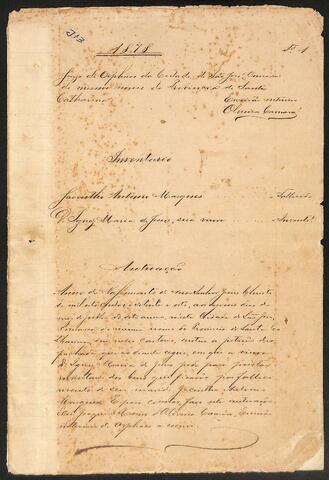 1878
Fl. 1
Juizo de Orphãos da Cidade de São José, Comarca
do mesmo nome da Provincia de Santa
Catharina
Escrivão interino
Oliveira Camara
Inventario
Jacintho Antonio Marques Fallecido
D. Ignez Maria de Jesus, sua viuva Invente.
Autuação
Anno do Nascimento de Nosso Senhor Jesus Christo
de mil oito centos e setenta e oito, aos dias do
mez de julho do dito anno, nesta Cidade de São José,
Comarca do mesmo nome da Provincia de Santa Ca
tharina, em meu cartorio, autuo a petição des
pachada que ao diante segue, em que a viuva
D. Ignez Maria de Jesus pede para proceder
inventario dos bens que ficarão por falleci
mento de seu marido Jacintho Antonio
Marques. E para constar faço esta autuação
Eu de Oliveira Camara, Escrivão
interino de Orphãos a escrevi